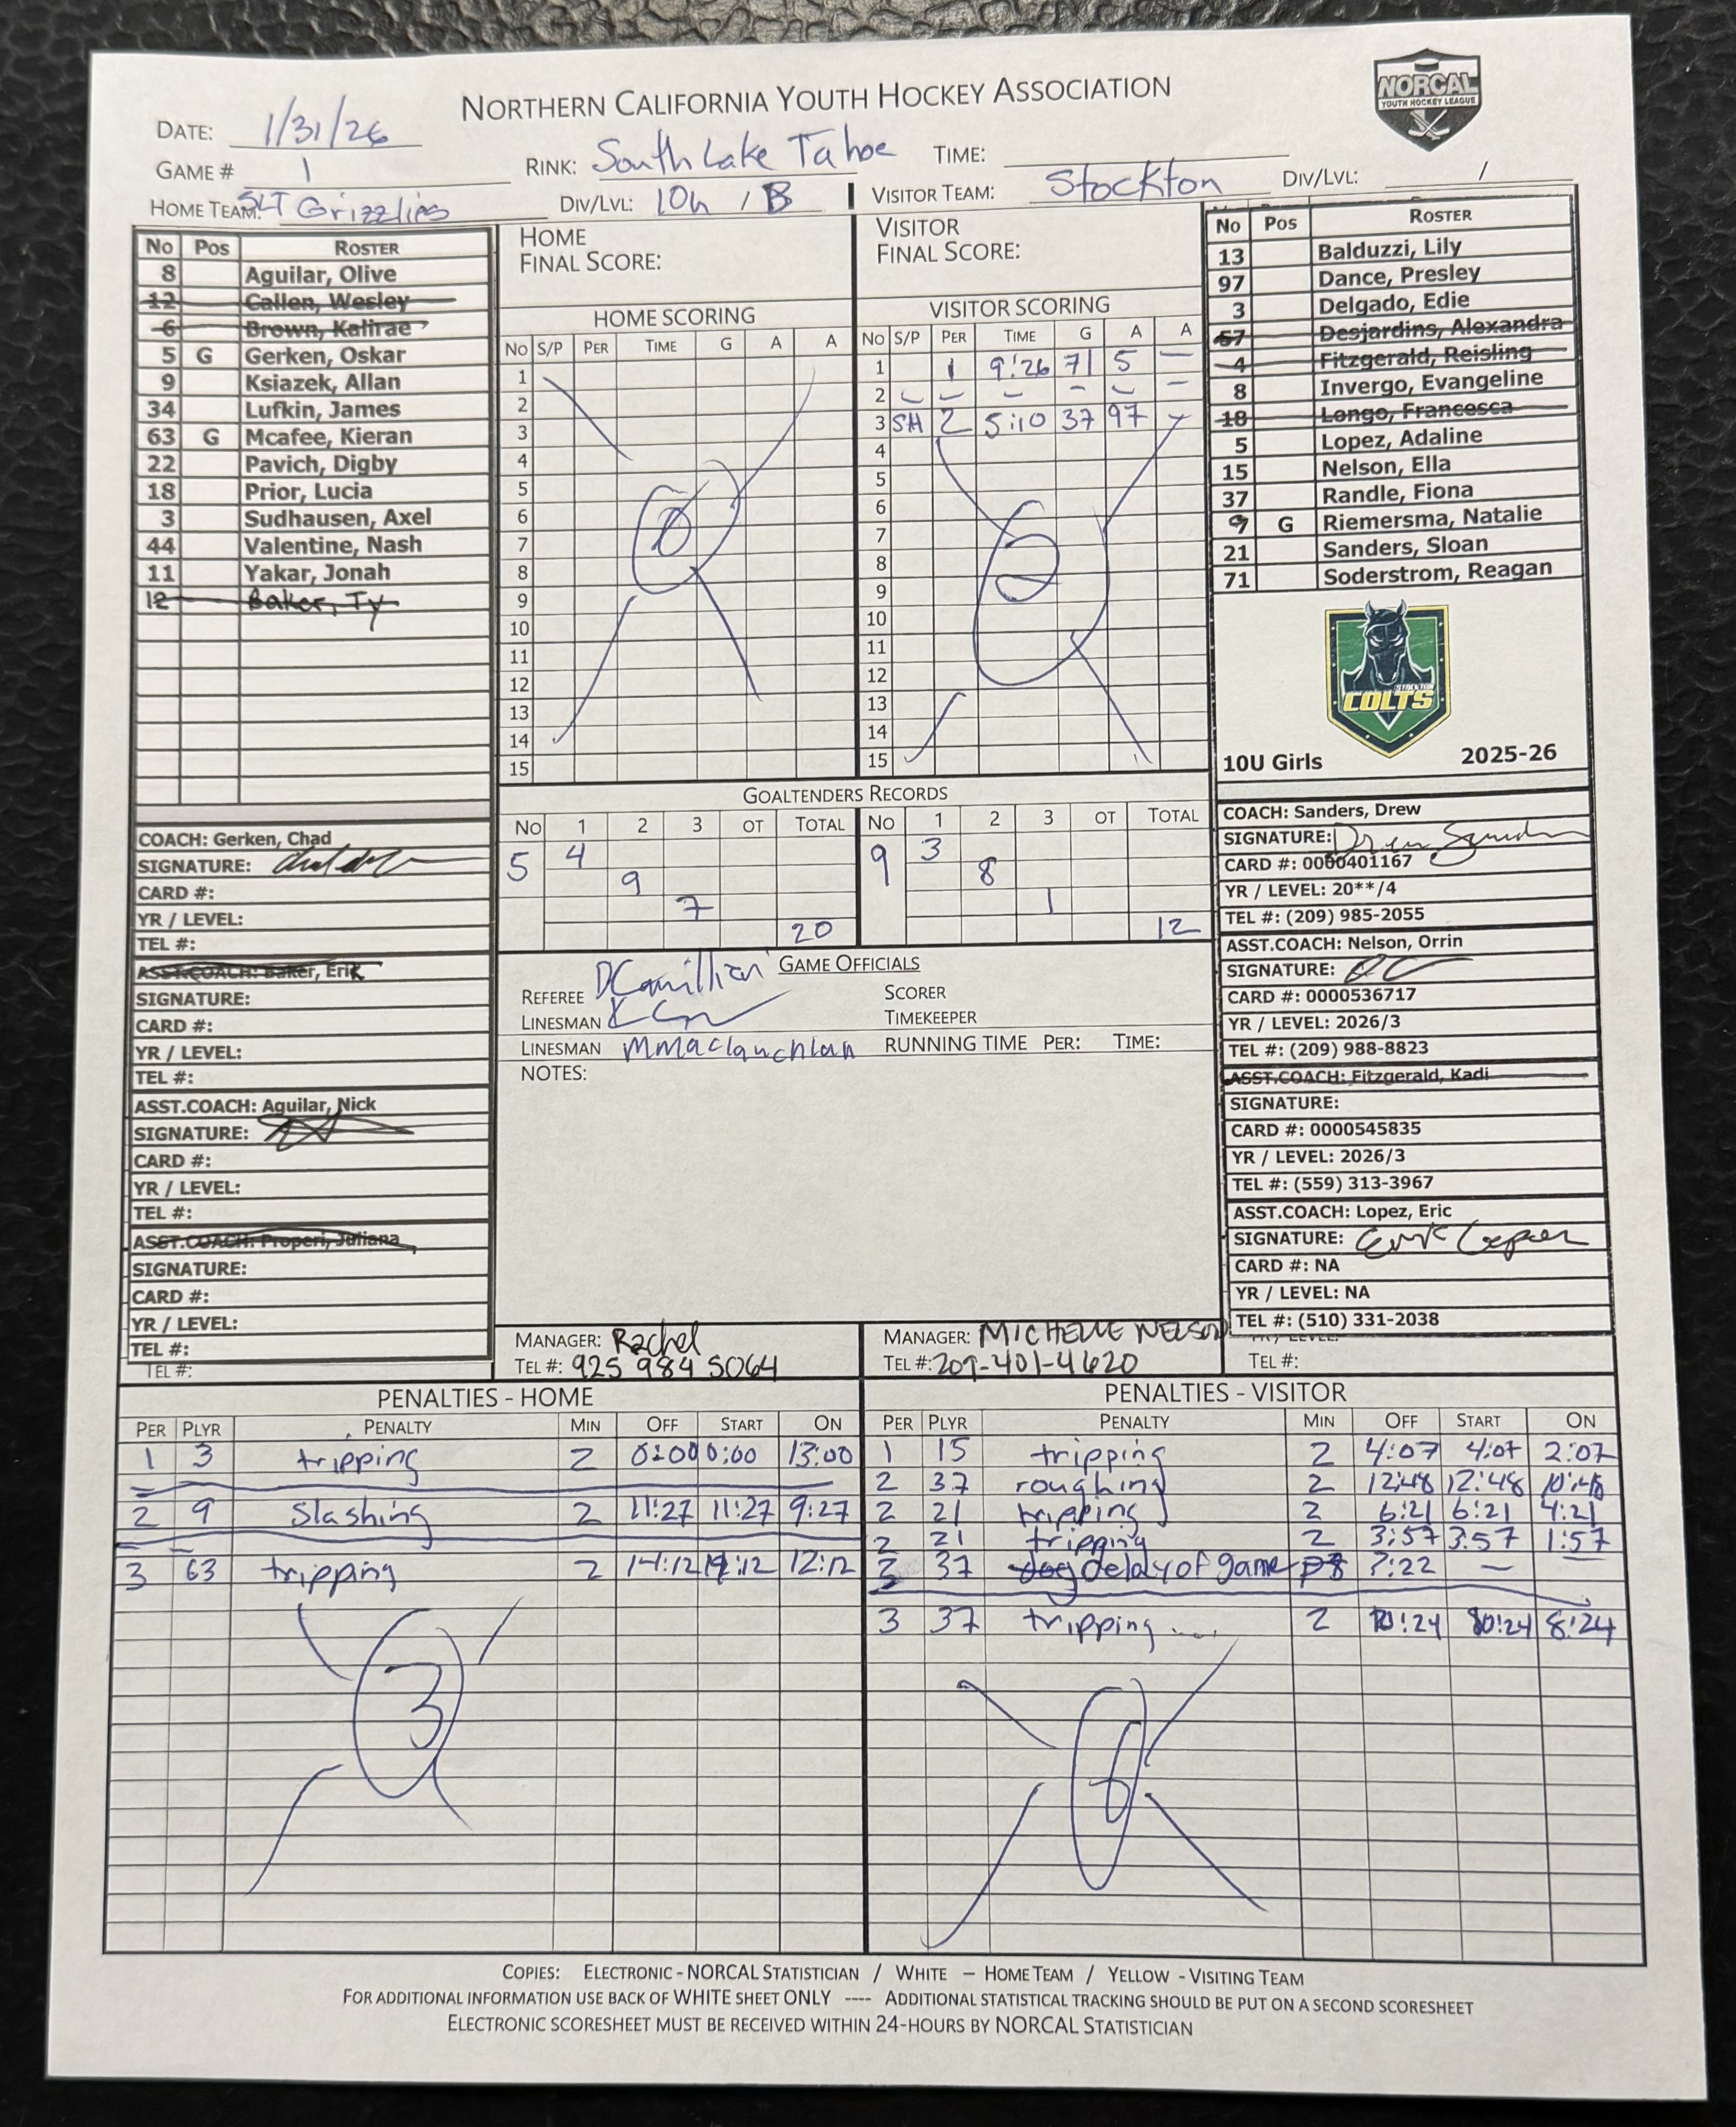 NORTHERN CALIFORNIA YOUTH HOCKEY ASSOCIATION
NORCAL
YOUTH HOCKEY LEAGUE
DATE: 1/31/26
GAME # 1
RINK: South Lake Tahoe
TIME:
HOME TEAM: SLT Grizzlies
DIV/LVL: 10u / B
VISITOR TEAM: Stockton
DIV/LVL: /
No Pos ROSTER
8 Aguilar, Olive
12 Callen, Wesley
6 Brown, Kalirae
5 G Gerken, Oskar
9 Ksiazek, Allan
34 Lufkin, James
63 G Mcafee, Kieran
22 Pavich, Digby
18 Prior, Lucia
3 Sudhausen, Axel
44 Valentine, Nash
11 Yakar, Jonah
12 Baker, Ty
COACH: Gerken, Chad
SIGNATURE:
CARD #:
YR / LEVEL:
TEL #:
ASST.COACH: Baker, Erik
SIGNATURE:
CARD #:
YR / LEVEL:
TEL #:
ASST.COACH: Aguilar, Nick
SIGNATURE:
CARD #:
YR / LEVEL:
TEL #:
ASST.COACH: Properi, Juliana
SIGNATURE:
CARD #:
YR / LEVEL:
TEL #:
TEL #:
HOME
FINAL SCORE:
HOME SCORING
No S/P PER TIME G A A
1
2
3
4
5
6
7
8
9
10
11
12
13
14
15
0
VISITOR
FINAL SCORE:
VISITOR SCORING
No S/P PER TIME G A A
1 1 9:26 71 5 —
2 - - - - - -
3 SH 2 5:10 37 97 -
4
5
6
7
8
9
10
11
12
13
14
15
GOALTENDERS RECORDS
No 1 2 3 OT TOTAL No 1 2 3 OT TOTAL
5 4 9 3
9 8
7 1
20 12
GAME OFFICIALS
REFEREE DCamillian SCORER
LINESMAN TIMEKEEPER
LINESMAN MMaclauchlan RUNNING TIME PER: TIME:
NOTES:
MANAGER: Rachel
TEL #: 925 984 5064
MANAGER: MICHELLE NELSON
TEL #: 209-401-4620
No Pos ROSTER
13 Balduzzi, Lily
97 Dance, Presley
3 Delgado, Edie
67 Desjardins, Alexandra
4 Fitzgerald, Reisling
8 Invergo, Evangeline
18 Longo, Francesca
5 Lopez, Adaline
15 Nelson, Ella
37 Randle, Fiona
9 G Riemersma, Natalie
21 Sanders, Sloan
71 Soderstrom, Reagan
STOCKTON
COLTS
10U Girls 2025-26
COACH: Sanders, Drew
SIGNATURE: Drew Sanders
CARD #: 0000401167
YR / LEVEL: 20**/4
TEL #: (209) 985-2055
ASST.COACH: Nelson, Orrin
SIGNATURE:
CARD #: 0000536717
YR / LEVEL: 2026/3
TEL #: (209) 988-8823
ASST.COACH: Fitzgerald, Kadi
SIGNATURE:
CARD #: 0000545835
YR / LEVEL: 2026/3
TEL #: (559) 313-3967
ASST.COACH: Lopez, Eric
SIGNATURE: Eric Lopez
CARD #: NA
YR / LEVEL: NA
TEL #: (510) 331-2038
TEL #:
PENALTIES - HOME
PER PLYR PENALTY MIN OFF START ON
1 3 tripping 2 0:00 0:00 13:00
2 9 Slashing 2 11:27 11:27 9:27
3 63 tripping 2 14:12 14:12 12:12
3
PENALTIES - VISITOR
PER PLYR PENALTY MIN OFF START ON
1 15 tripping 2 4:07 4:07 2:07
2 37 roughing 2 12:48 12:48 10:48
2 21 tripping 2 6:21 6:21 4:21
2 21 tripping 2 3:57 3:57 1:57
37 delay of game :22 —
3 37 tripping 2 10:24 10:24 8:24
6
COPIES: ELECTRONIC - NORCAL STATISTICIAN / WHITE – HOME TEAM / YELLOW - VISITING TEAM
FOR ADDITIONAL INFORMATION USE BACK OF WHITE SHEET ONLY ---- ADDITIONAL STATISTICAL TRACKING SHOULD BE PUT ON A SECOND SCORESHEET
ELECTRONIC SCORESHEET MUST BE RECEIVED WITHIN 24-HOURS BY NORCAL STATISTICIAN